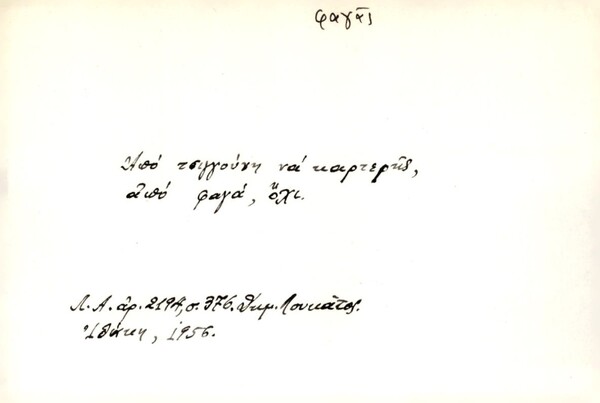 φαγᾶς
Ἀπό τσιγγούνη νά καρτερῇς,
ἀπό φαγά, ὄχι.
Λ. Α. ἀρ. 2194, σ. 376. Δημ. Λουκᾶτος.
Ἰθάκη, 1956.